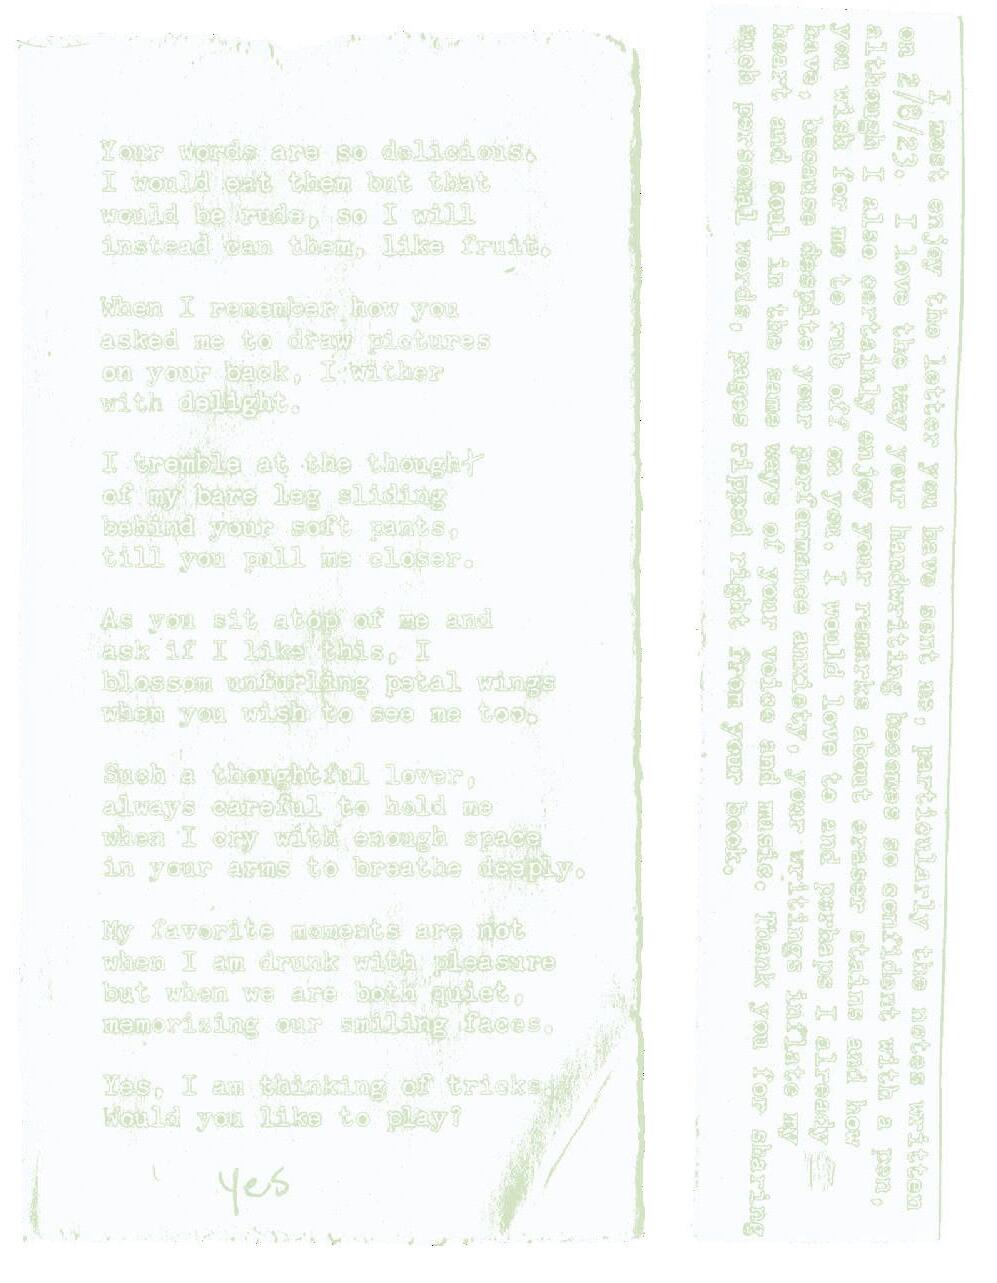 Your words are so delicious.
I would eat them but that
would be rude, so I will
instead can them, like fruit.
When I remember how you
asked me to draw pictures
on your back, I wither
with delight.
I tremble at the thought
of my bare leg sliding
behind your soft pants,
till you pull me closer.
As you sit atop of me and
ask if I like this, I
blossom unfurling petal wings
when you wish to see me too.
Such a thoughtful lover,
always careful to hold me
when I cry with enough space
in your arms to breathe deeply.
My favorite moments are not
when I am drunk with pleasure
but when we are both quiet,
memorizing our smiling faces.
Yes, I am thinking of tricks.
Would you like to play?
yes
I most enjoy the letter you have sent me, particularly the notes written
on 2/8/23. I love the way your handwriting becomes so confident with a pen,
although I also certainly enjoy your remarks about eraser stains and how
you wish for me to rub off on you. I would love to and perhaps I already
have, because despite your performance anxiety, your writings inflate my
heart and soul in the same ways of your voice and music. Thank you for sharing
such personal words, pages ripped right from your book.